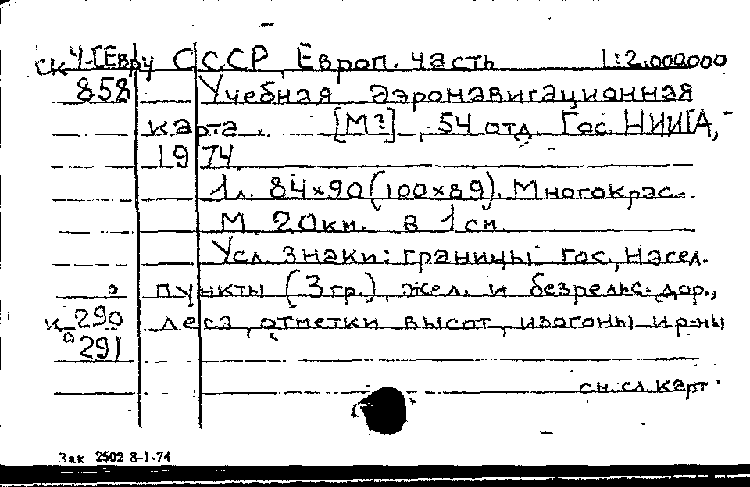 СК Ч-[Евр] СССР, Европ. часть 1:2.000000
858 Учебная аэронавигационная
карта. [М?], 54 отд. Гос. НИИГА,
1974
1 л. 84×90 (100×89). Многокрас.
М. 20км. в 1 см.
Усл. знаки: границы гос., насел.
пункты (3 гр.), жел. и безрельс. дор.,
к 290 леса, отметки высот, изогоны и р-ны
291
см. сл. карт.
Зак 2502 8-1-74